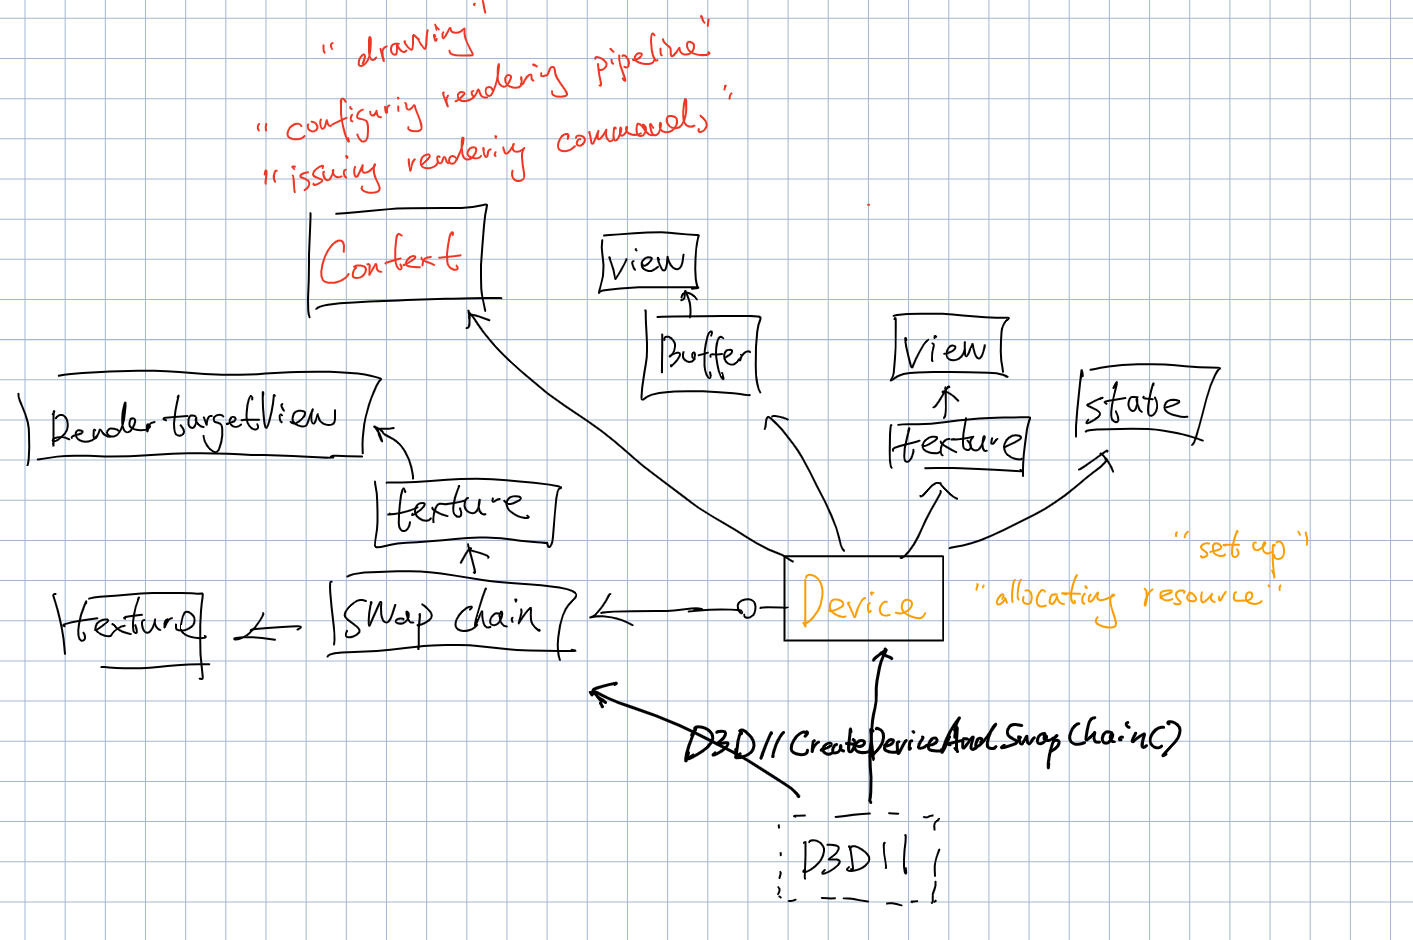 "drawing"
"configuring rendering pipeline"
"issuing rendering commands"
Context
view
Buffer
View
texture
state
RendertargetView
texture
texture
swap chain
Device
"set up"
"allocating resource"
D3D11CreateDeviceAndSwapChain()
D3D11